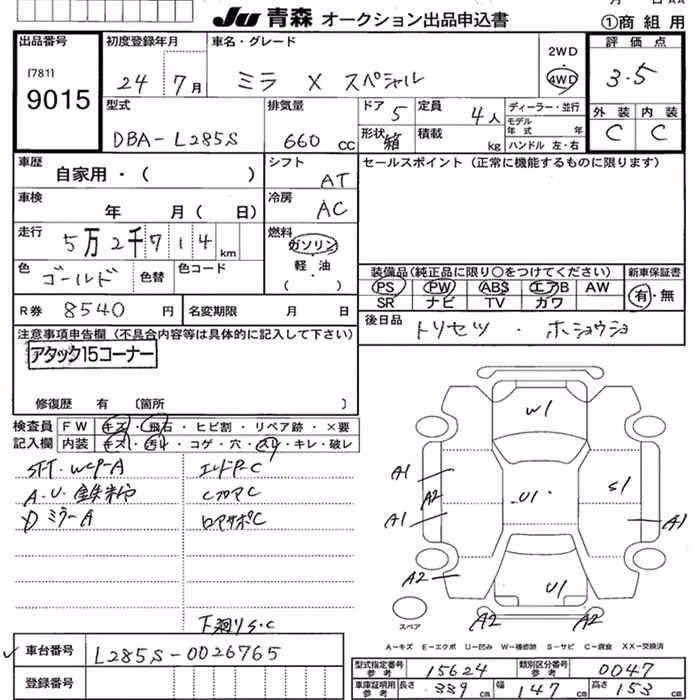 JU 青森 オークション出品申込書
①商組用
出品番号
[781]
9015
初度登録年月
24 7月
車名・グレード
ミラ X スペシャル
2WD
4WD
評価点
3.5
外装 内装
C C
型式
DBA-L285S
排気量
660 cc
ドア 5
形状 箱
定員 4人
積載 kg
ディーラー・並行
モデル年式 年
ハンドル 左・右
車歴
自家用・( )
シフト
AT
セールスポイント (正常に機能するものに限ります)
車検
年 月( 日)
冷房
AC
走行
5万2千714 km
燃料
ガソリン
軽・油
( )
色
ゴールド
色替
色コード
装備品(純正品に限り○をつけてください)
PS PW ABS エアB AW
SR ナビ TV カワ
新車保証書
有・無
R券 8540 円
名変期限 月 日
後日品
トリセツ・ホショウショ
注意事項申告欄 (不具合内容等は具体的に記入して下さい)
アタック15コーナー
修復歴 有 〔箇所 〕
検査員記入欄
FW キズ・飛石・ヒビ割・リペア跡・×要
内装 キズ・汚レ・コゲ・穴・スレ・キレ・破レ
STT・WCP-A
A・U・
DミラーA
エンドP-C
CカアマC
ロアサポC
下廻りS・C
W1
A1
A2
A1
U1
S1
A1
A2
U1
A2
A2
スペア
A=キズ E=エクボ U=凹み W=補修跡 S=サビ C=腐食 XX=交換済
車台番号
L285S-0026765
登録番号
型式指定番号参考 15624
類別区分番号参考 0047
車庫証明用参考 長さ 339 cm 幅 147 cm 高さ 153 cm